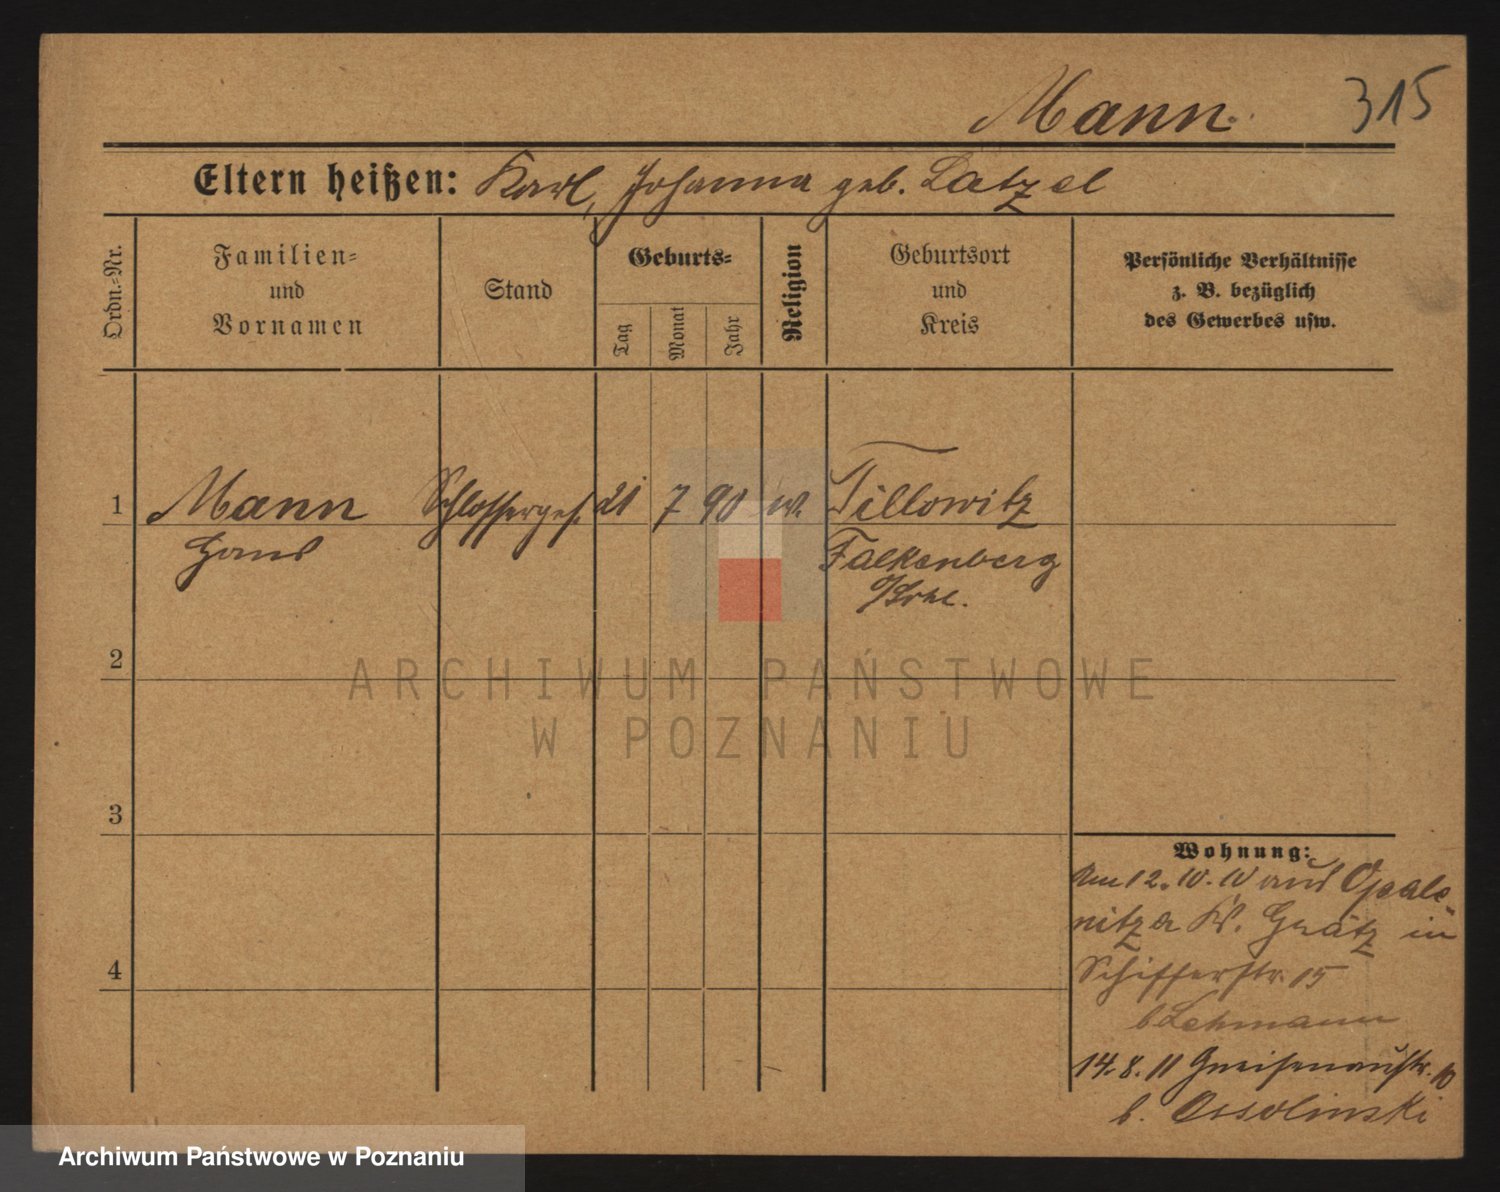 Mann.
315
Eltern heißen: Karl, Johanna geb. Latzel
Ordn.-Nr.
Familien-
und
Vornamen
Stand
Geburts-
Tag
Monat
Jahr
Religion
Geburtsort
und
Kreis
Persönliche Verhältnisse
z. B. bezüglich
des Gewerbes usw.
1
Mann Schlosserges. 21 7 90 Tillowitz
Hans Falkenberg
2
ARCHIWUM PAŃSTWOWE
W POZNANIU
3
Wohnung:
Am 12. 10. 10 aus Opale-
nitza Kr. Grätz in
4
Schifferstr. 15
b Lehmann
14. 8. 11 Gneisenaustr. 10
b. Ossolinski
Archiwum Państwowe w Poznaniu